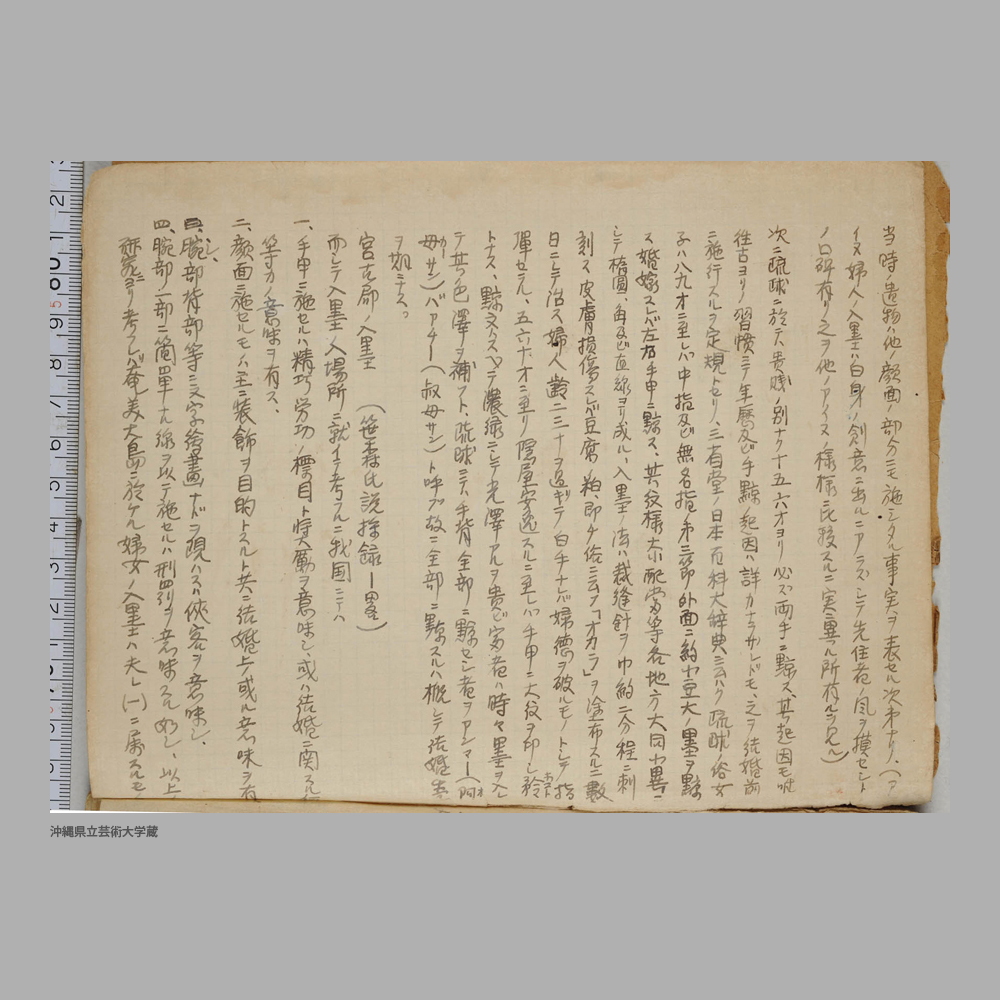 当時ノ遺物ハ他ノ顔面ノ部分ニモ施シタル事実ヲ表セル次第ナリ、(ア
イヌ婦人入墨ハ自身ノ創意ニ出ルニアラズシテ先住者ノ風ヲ摸セシト
ノ口碑有リ之ヲ他ノアイヌノ様様ニ比較スルニ実ニ異ル所有ルヲ見ル)
次ニ琉球ニ於テハ貴賤ノ別ナク十五六才ヨリ必ズ両手ニ黥ス、其起因モ唯
往古ヨリノ習慣ニテ年暦及ビ手黥ノ起因ハ詳カナラサレドモ、之ヲ結婚前
ニ施行スルヲ定規トセリ、三省堂ノ日本百科大辞典ニ云ハク琉球ノ俗女
子ハ八九才ニ至レバ中指及ビ無名指ノ第二節外面ニ約小豆大ノ墨ヲ黥
ス婚嫁スレバ左右手甲ニ黥ス、其紋様大小配当等各地方大同小異ニ
シテ楕圓、角及ビ直線ヨリ成ル、入墨ノ法ハ裁縫針ヲ巾約二分程ニ刺
刻ス皮膚損傷スレバ豆腐ノ粕、即チ俗ニ云フ「オカラ」ヲ塗布スルニ数
日ニシテ治ス婦人齢二三十ヲ過ギテ白手ナレバ婦徳ヲ破ルモノトシテ指
弾セラル、五六十才ニ至リ隠居安逸スルニ至レバ手甲ニ大紋ヲ印シ誇
トナス、黥文ハスベテ濃緑ニシテ光澤アルヲ貴ビ富者ハ時々墨ヲ入レ
テ其色澤ヲ補フト、琉球ニテハ手背全部ニ黥セシ者ヲアンマー(阿
母サン)バアチー(叔母サン)ト呼ブ故ニ全部ニ黥スルハ概シテ結婚者
ヲ
宮古郡ノ入墨 (笹森氏説採録―畧)
而シテ入墨ノ場所ニ就イテ考フルニ我国ニテハ
一、手甲ニ施セルハ精巧労功ノ標目ト特ニ勤ヲ意味シ、或ハ結婚ニ関スル
等ノ意味ヲ有ス、
二、顔面ニ施セルモノハ主ニ装飾ヲ目的トスルト共ニ結婚上ノ或ル意味ヲ有
シ、
三、腕部背部等ニ文字繪畫ナドヲ現ハスハ侠客ヲ意味シ、
四、腕部ノ一部ニ簡単ナル線ヲ以テ施セルハ刑罰ヲ意味スル如シ、以上
ヨリ考フレバ奄美大島ニ於ケル婦女ノ入墨ハ夫レ(一)ニ属スルモ
沖縄県立芸術大学蔵